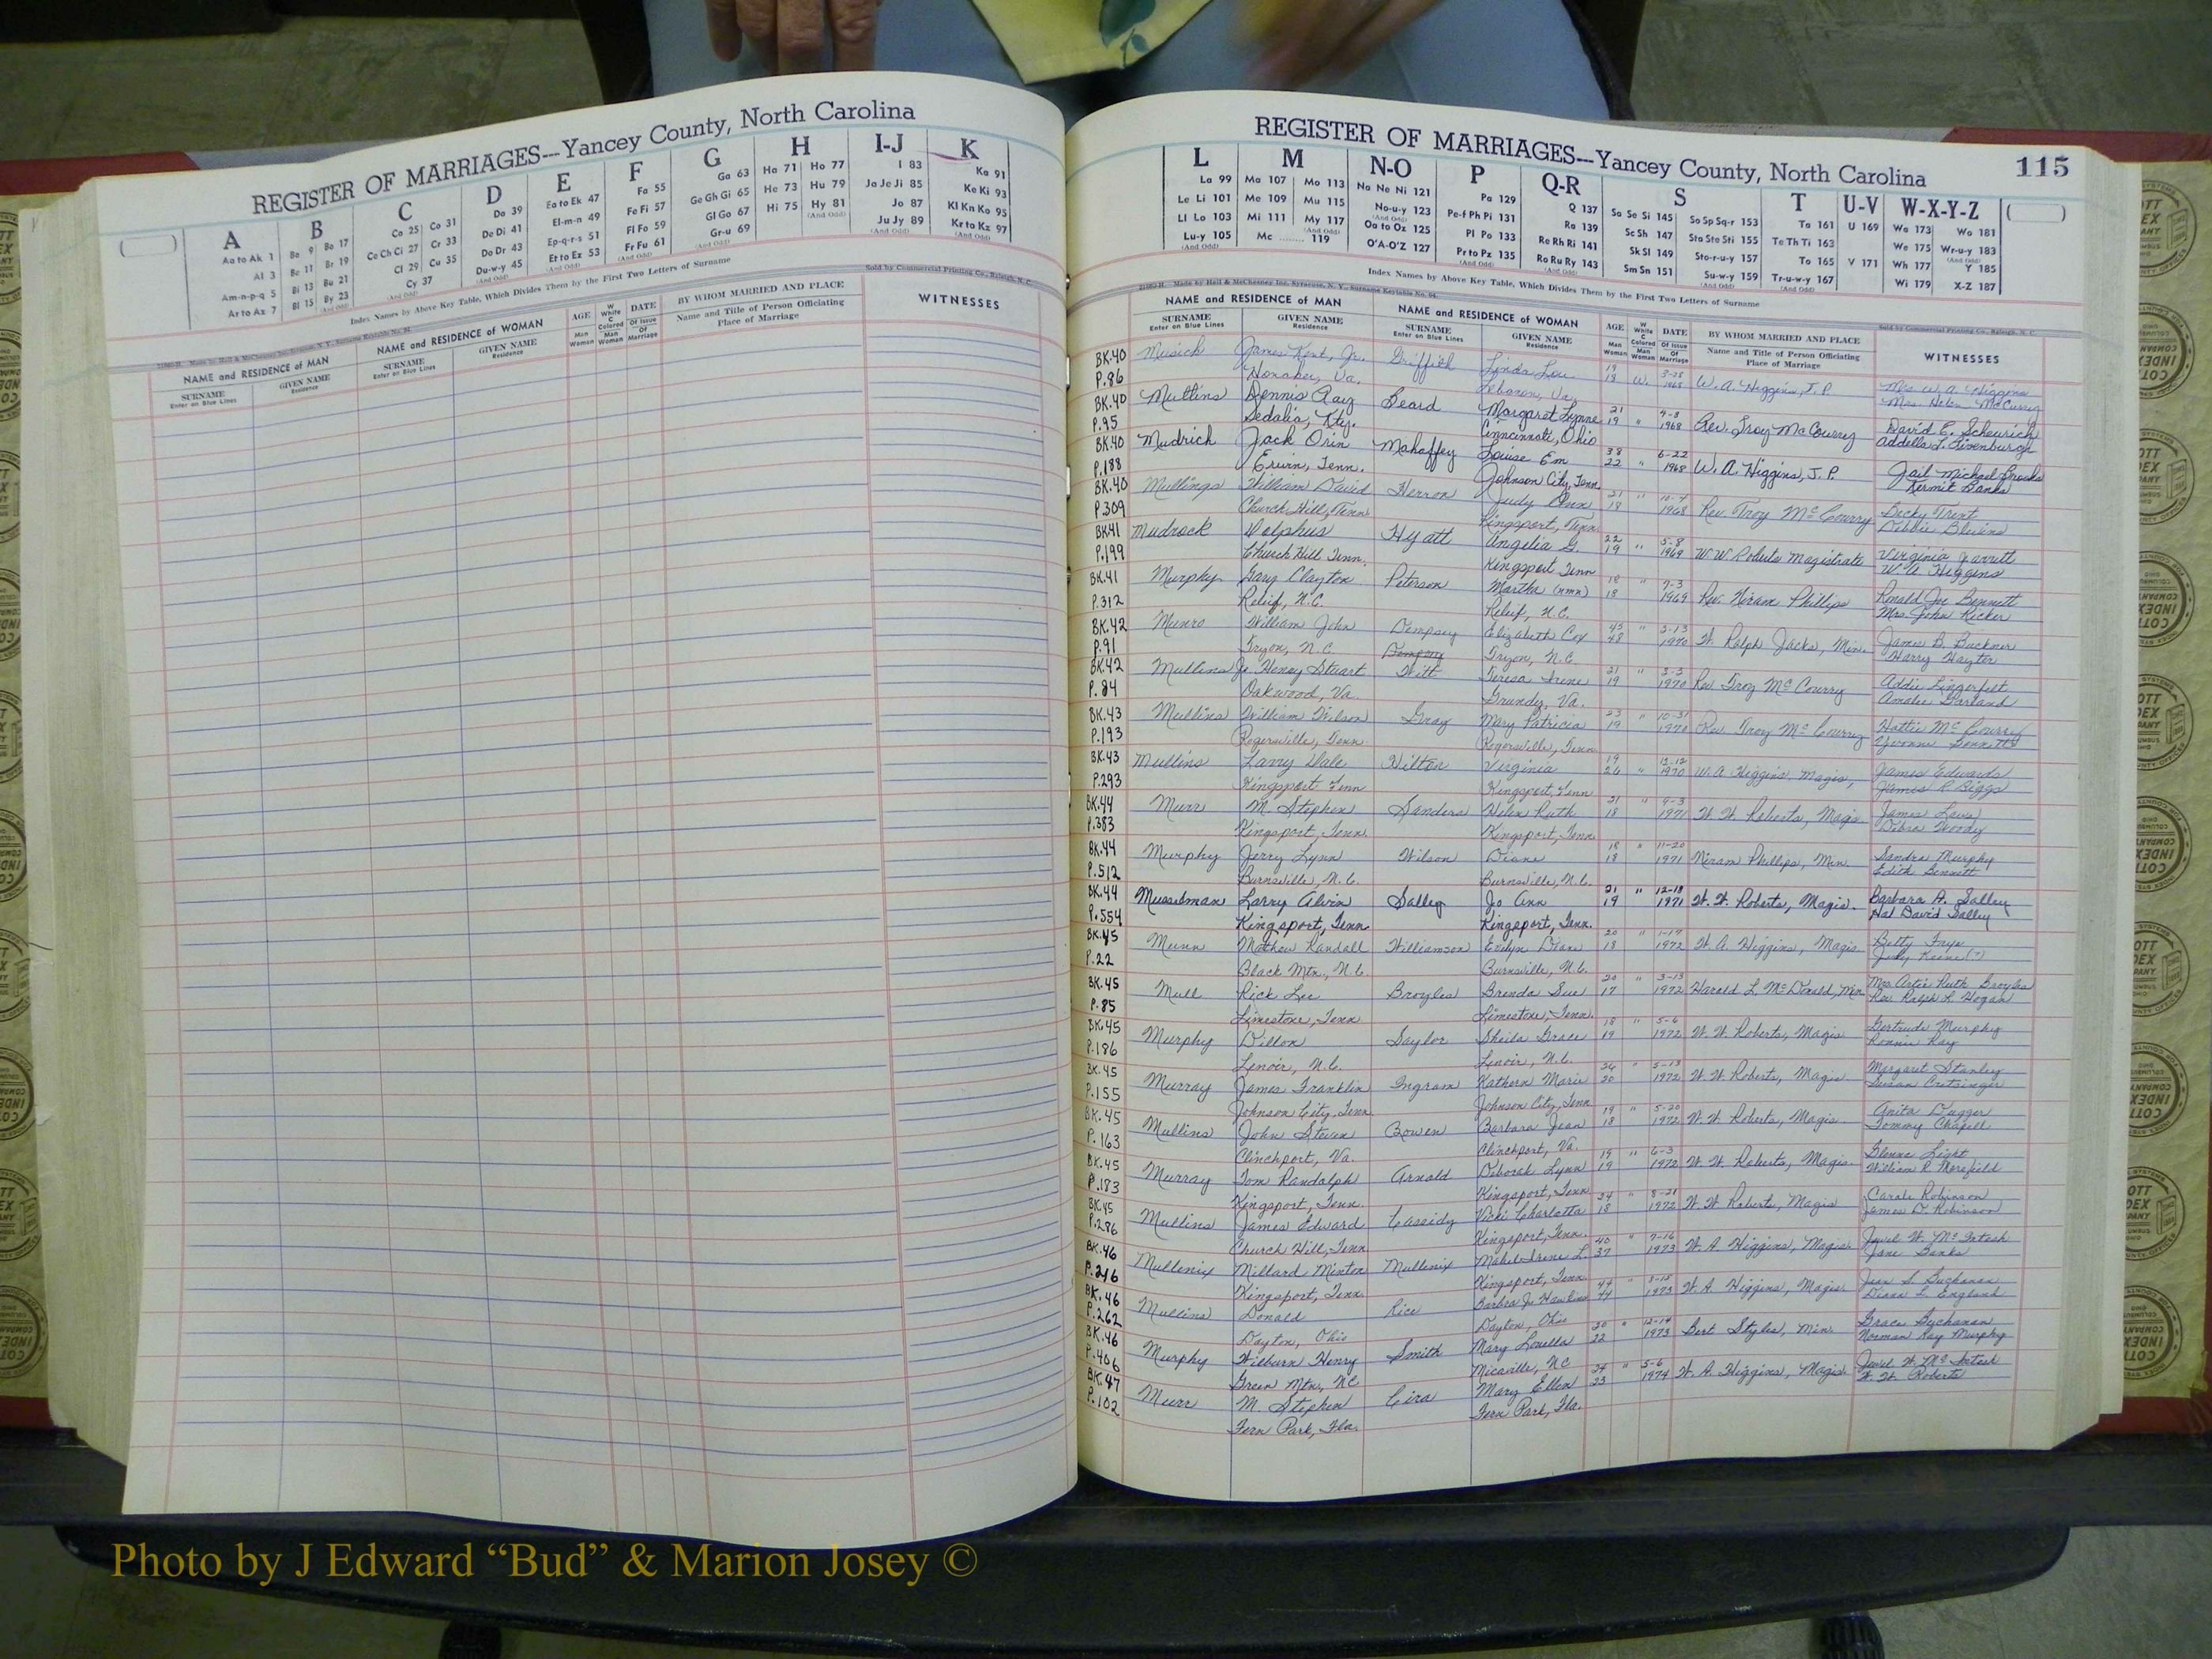 REGISTER OF MARRIAGES---Yancey County, North Carolina
A B C D E F G H I-J K
Aa to Ak 1
Al 3
Am-n-p-q 5
Ar to Az 7
Ba 9 Bo 17
Be 11 Br 19
Bi 13 Bu 21
Bl 15 By 23
Ca 25 Co 31
Ce Ch Ci 27 Cr 33
Cl 29 Cu 35
Cy 37
Da 39
De Di 41
Do Dr 43
Du-w-y 45
Ea to Ek 47
El-m-n 49
Ep-q-r-s 51
Et to Ez 53
Fa 55
Fe Fi 57
Fl Fo 59
Fr Fu 61
Ga 63
Ge Gh Gi 65
Gl Go 67
Gr-u 69
Ha 71 Ho 77
He 73 Hu 79
Hi 75 Hy 81
I 83
Ja Je Ji 85
Jo 87
Ju Jy 89
Ka 91
Ke Ki 93
Kl Kn Ko 95
Kr to Kz 97
Index Names by Above Key Table, Which Divides Them by the First Two Letters of Surname
Sold by Commercial Printing Co., Raleigh, N. C.
NAME and RESIDENCE of MAN
NAME and RESIDENCE of WOMAN
AGE
DATE
BY WHOM MARRIED AND PLACE
WITNESSES
SURNAME
Enter on Blue Lines
GIVEN NAME
Residence
SURNAME
Enter on Blue Lines
GIVEN NAME
Residence
Man
Woman
W White
C Colored
Man
Woman
Of Issue
Of Marriage
Name and Title of Person Officiating
Place of Marriage
REGISTER OF MARRIAGES---Yancey County, North Carolina 115
L M N-O P Q-R S T U-V W-X-Y-Z
La 99
Le Li 101
Ll Lo 103
Lu-y 105
Ma 107 Mo 113
Me 109 Mu 115
Mi 111 My 117
Mc 119
Na Ne Ni 121
No-u-y 123
Oa to Oz 125
O'A-O'Z 127
Pa 129
Pe-f Ph Pi 131
Pl Po 133
Pr to Pz 135
Q 137
Ra 139
Re Rh Ri 141
Ro Ru Ry 143
Sa Se Si 145 So Sp Sq-r 153
Sc Sh 147 Sta Ste Sti 155
Sk Sl 149 Sto-r-u-y 157
Sm Sn 151 Su-w-y 159
Ta 161
Te Th Ti 163
To 165
Tr-u-w-y 167
U 169
V 171
Wa 173 Wo 181
We 175 Wr-u-y 183
Wh 177 Y 185
Wi 179 X-Z 187
Index Names by Above Key Table, Which Divides Them by the First Two Letters of Surname
Made by Hall & McChesney Inc. Syracuse, N. Y.
Sold by Commercial Printing Co., Raleigh, N. C.
NAME and RESIDENCE of MAN
NAME and RESIDENCE of WOMAN
AGE
DATE
BY WHOM MARRIED AND PLACE
WITNESSES
SURNAME
Enter on Blue Lines
GIVEN NAME
Residence
SURNAME
Enter on Blue Lines
GIVEN NAME
Residence
Man
Woman
W White
C Colored
Man
Woman
Of Issue
Of Marriage
Name and Title of Person Officiating
Place of Marriage
BK.40 Musick James Kent, Jr. Griffith Linda Lou 19 18 W. 1968 W. A. Higgins, J. P. Mrs. W. A. Higgins
P.86 Honaker, Va. Lebanon, Va. Mrs. Helen McCurry
BK.40 Mullins Dennis Ray Beard Margaret Lynne 21 19 " 1968 Rev. Troy McCourry David E. Scheurich
P.95 Sedalia, Kty. Cincinnati, Ohio
BK.40 Mudrich Jack Orin Mahaffey Louise Em 38 22 " 6-22 1968 W. A Higgins, J. P. Gail Michael Brooks
P.188 Erwin, Tenn. Johnson City, Tenn Kermit Banks
BK.40 Mullings William David Herron Judy Ann 21 18 " 1968 Rev. Troy McCourry Becky Trent
P.309 Church Hill, Tenn. Kingsport, Tenn. Debbie Blevins
BK41 Mudrock Dolphus Hyatt Angelia G. 22 19 " 5-8 1969 W. W. Roberts magistrate Virginia Jarrett
P.199 Church Hill Tenn. Kingsport Tenn W. A Higgins
BK.41 Murphy Gary Clayton Peterson Martha (nmn) 18 18 " 7-3 1969 Rev. Hiram Phillips Ronald Joe Bennett
P.312 Relief, N.C. Relief, N. C. Mrs. John Ricker
BK.42 Munro William John Dempsey Elizabeth Coy 45 48 " 1970 W. Ralph Jacks, Min. James B. Buckner
P.91 Tryon, N. C. Tryon, N. C Harry Hayter
BK.42 Mullins Jr. Henry Stuart Witt Teresa Irene 21 19 " 3-3 1970 Rev Troy McCourry Addie Lingerfelt
P.84 Oakwood, Va. Grundy, Va. Amalee Garland
BK.43 Mullins William Wilson Gray Mary Patricia 23 19 " 10-31 1970 Rev Troy McCourry Hattie McCourry
P.193 Rogersville, Tenn. Rogersville, Tenn Yvonne Bennett
BK.43 Mullins Larry Dale Hilton Virginia 19 26 " 12-12 1970 W. A Higgins, Magis, James Edwards
P.293 Kingsport Tenn Kingsport, Tenn James R Biggs
BK.44 Murr M. Stephen Sanders Helen Ruth 21 18 " 9-3 1971 W. W. Roberts, Magis James Laws
P.383 Kingsport, Tenn. Kingsport, Tenn. Debra Woody
BK.44 Murphy Jerry Lynn Wilson Diane 18 18 " 11-20 1971 Hiram Phillips, Min. Sandra Murphy
P.512 Burnsville, N.C. Burnsville, N.C. Edith Bennett
BK.44 Musselman Larry Alvin Salley Jo Ann 21 19 " 12-18 1971 W. W. Roberts, Magis. Barbara A. Salley
P.554 Kingsport, Tenn Kingsport, Tenn. Hal David Salley
BK.45 Munn Mathew Randall Williamson Evelyn Diane 20 18 " 1-19 1972 W. A. Higgins, Magis Betty Faye
P.22 Black Mtn., N.C. Burnsville, N.C.
BK.45 Mull Rick Lee Broyles Brenda Sue 20 17 " 3-13 1972 Harold L. McDonald, Min Mrs Artie Ruth Broyles
P.85 Limestone, Tenn Limestone, Tenn. Rev Ralph L. Hogan
BK.45 Murphy Dillon Saylor Sheila Grace 18 19 " 5-6 1972 W. W. Roberts, Magis Gertrude Murphy
P.186 Lenoir, N.C. Lenoir, N.C. Ronnie Ray
BK.45 Murray James Franklin Ingram Kathern Marie 26 20 " 5-13 1972 W. W. Roberts, Magis Margaret Stanley
P.155 Johnson City, Tenn. Johnson City, Tenn Susan Cretsinger
BK.45 Mullins John Steven Bowen Barbara Jean 19 18 " 5-20 1972 W. W. Roberts, Magis Anita Dugger
P.163 Clinchport, Va. Clinchport, Va. Tommy Chapell
BK.45 Murray Tom Randolph Arnald Deborah Lynn 19 19 " 6-3 1972 W. W. Roberts, Magis Glenna Light
P.183 Kingsport, Tenn. Kingsport, Tenn William R Merefield
BK45 Mullins James Edward Cassidy Vicki Charlotta 24 18 " 8-21 1972 W. W Roberts, Magis Carole Robinson
P.286 Church Hill, Tenn Kingsport, Tenn. James D. Robinson
BK.46 Mullenix Millard Minton Mullenix Mabel Irene L. 40 37 " 7-16 1973 W. A. Higgins, Magis Jewel W. McIntosh
P.216 Kingsport, Tenn. Kingsport, Tenn Jane Banks
BK.46 Mullins Donald Rice Barbra Jo Hawkins 44 44 " 1973 W. A. Higgins, Magis Jean S. Buchanan
P.262 Dayton, Ohio Dayton, Ohio Diana L. England
BK.46 Murphy Wilburn Henry Smith Mary Louella 30 22 " 12-14 1973 Bert Styles, Min. Grace Buchanan
P.406 Green Mtn., NC Micaville, NC Norman Ray Murphy
BK.47 Murr M. Stephen Cira Mary Ellen 24 23 " 5-6 1974 W. A. Higgins, Magis Jewel W. McIntosh
P.102 Fern Park, Fla. Fern Park, Fla. W. W. Roberts
Photo by J Edward “Bud” & Marion Josey ©